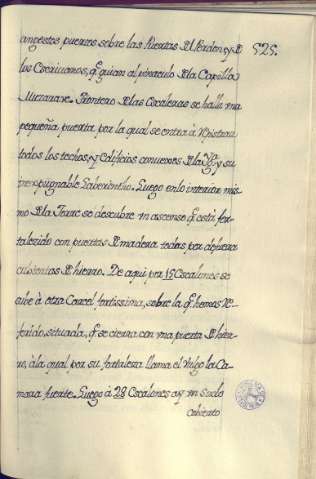 angostos puentes sobre las Puertas del Perdon, y de 525.
los Escrivanos, q̃ guian al pinaculo de la Capilla
Muzarave. Frontero de las Escaleras se halla vna
pequeña puerta por la qual se entra à registrar
todos los techos, y Edificios conuexos de la Yg.ª y su
inexpugnable Laberintho. Luego en lo interior mis-
mo de la Torre se descubre un ascenso q̃ està for-
talezido con puertas de madera todas por defuera
cubiertas de hierro. De aqui por 15 Escalones se
sube à otra Carcel fortissima, sobre la q̃ hemos re-
ferido, situada, q̃ se cierra con vna puerta de hier-
ro, à la qual por su fortaleza llama el Vulgo la Ca-
mara fuerte. Luego à 28 Escalones ay un Suelo
abierto